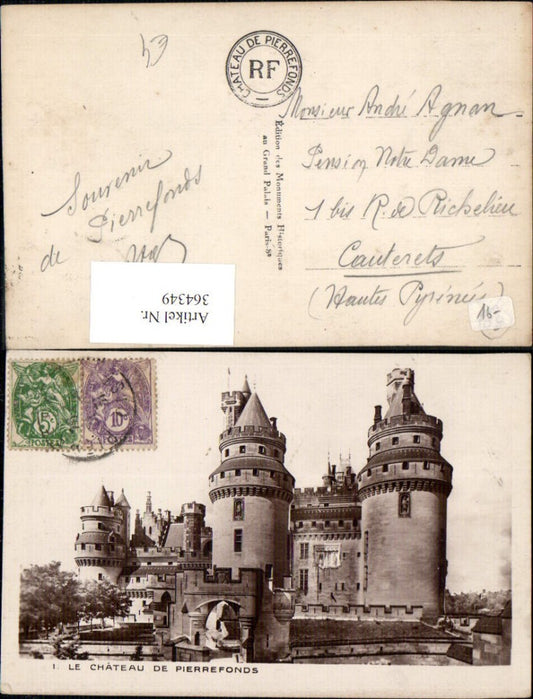 CHATEAU DE PIERREFONDS
RF
Souvenir
de Pierrefonds
Édition des Monuments Historiques
au Grand Palais — Paris-8e
Monsieur André Agnan
Pension Notre Dame
1 bis R. de Richelieu
Cauterets
(Hautes Pyrénées)
Artikel Nr.
364349
16-
5c
POSTES
10c
1. LE CHÂTEAU DE PIERREFONDS